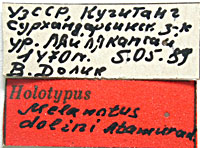 УзССР, Кугитанг
Сурхандарьинск. з-к
ур.
1470м. 5.05.89
В. Долин
Holotypus
Melanotus
dolini Atamurad.